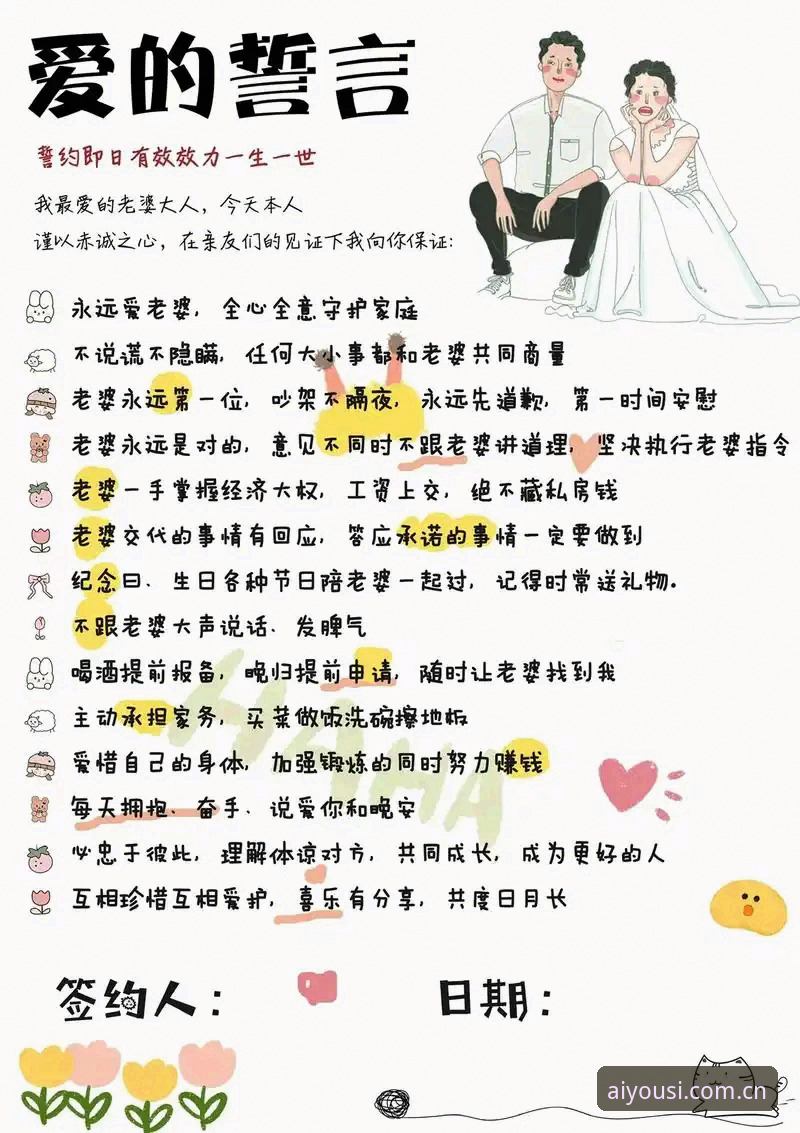 爱的誓言
誓约即日有效效力一生一世
我最爱的老婆大人，今天本人
谨以赤诚之心，在亲友们的见证下我向你保证:
永远爱老婆，全心全意守护家庭
不说谎不隐瞒，任何大小事都和老婆共同商量
老婆永远第一位，吵架不隔夜，永远先道歉，第一时间安慰
老婆永远是对的，意见不同时不跟老婆讲道理，坚决执行老婆指令
老婆一手掌握经济大权，工资上交，绝不藏私房钱
老婆交代的事情有回应，答应承诺的事情一定要做到
纪念日、生日各种节日陪老婆一起过，记得时常送礼物。
不跟老婆大声说话、发脾气
喝酒提前报备，晚归提前申请，随时让老婆找到我
主动承担家务，买菜做饭洗碗擦地板
爱惜自己的身体，加强锻炼的同时努力赚钱
每天拥抱、奋手、说爱你和晚安
必忠于彼此，理解体谅对方，共同成长，成为更好的人
互相珍惜互相爱护，喜乐有分享，共度日月长
HAHA
签约人： 日期：
aiyousi.com.cn